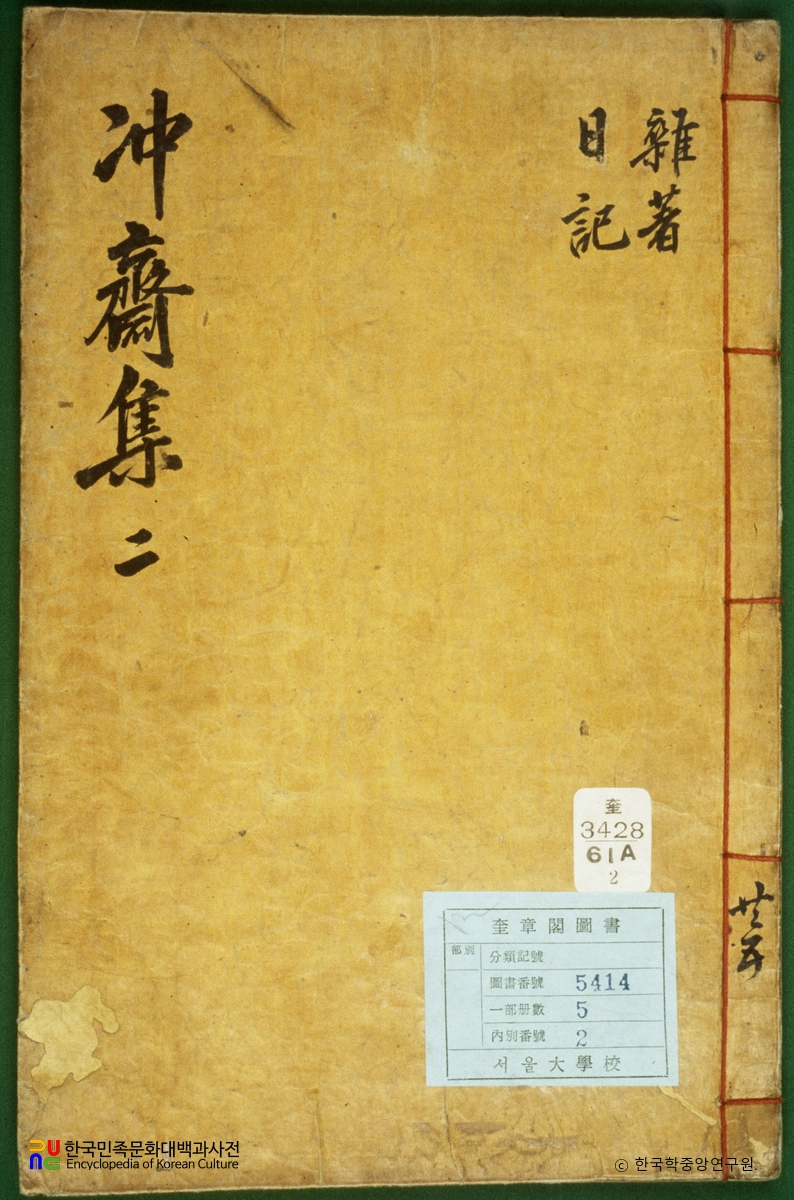 冲齋集 二
雜著
日記
奎
3428
61A
2
奎章閣圖書
部別
分類記號
圖書番號 5414
一部册數 5
內別番號 2
서울大學校
共五
한국민족문화대백과사전
Encyclopedia of Korean Culture
© 한국학중앙연구원